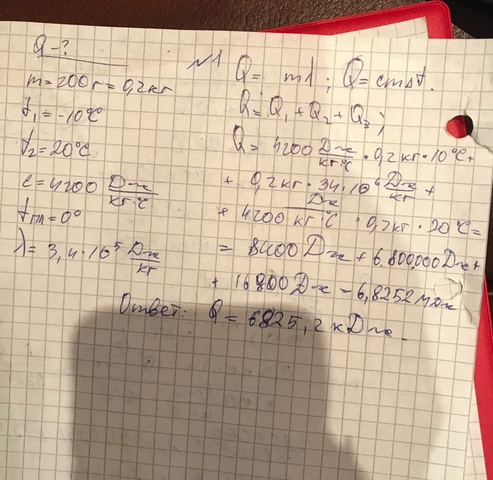 Q-?
№1
m=200г=0,2кг
t₁=-10°C
t₂=20°C
c=4200 Дж/кг·°C
tпл=0°
λ=3,4·10⁵ Дж/кг
Q= mλ; Q=cmΔt.
Q=Q₁+Q₂+Q₃;
Q=4200 Дж/кг·°C · 0,2кг·10°C+
+ 0,2кг·34·10⁶ Дж/кг +
+ 4200 Дж/кг·°C · 0,2кг·20°C=
= 8400Дж + 6.800,000Дж+
+ 16800Дж = 6,8252МДж
Ответ: Q=6825,2кДж.